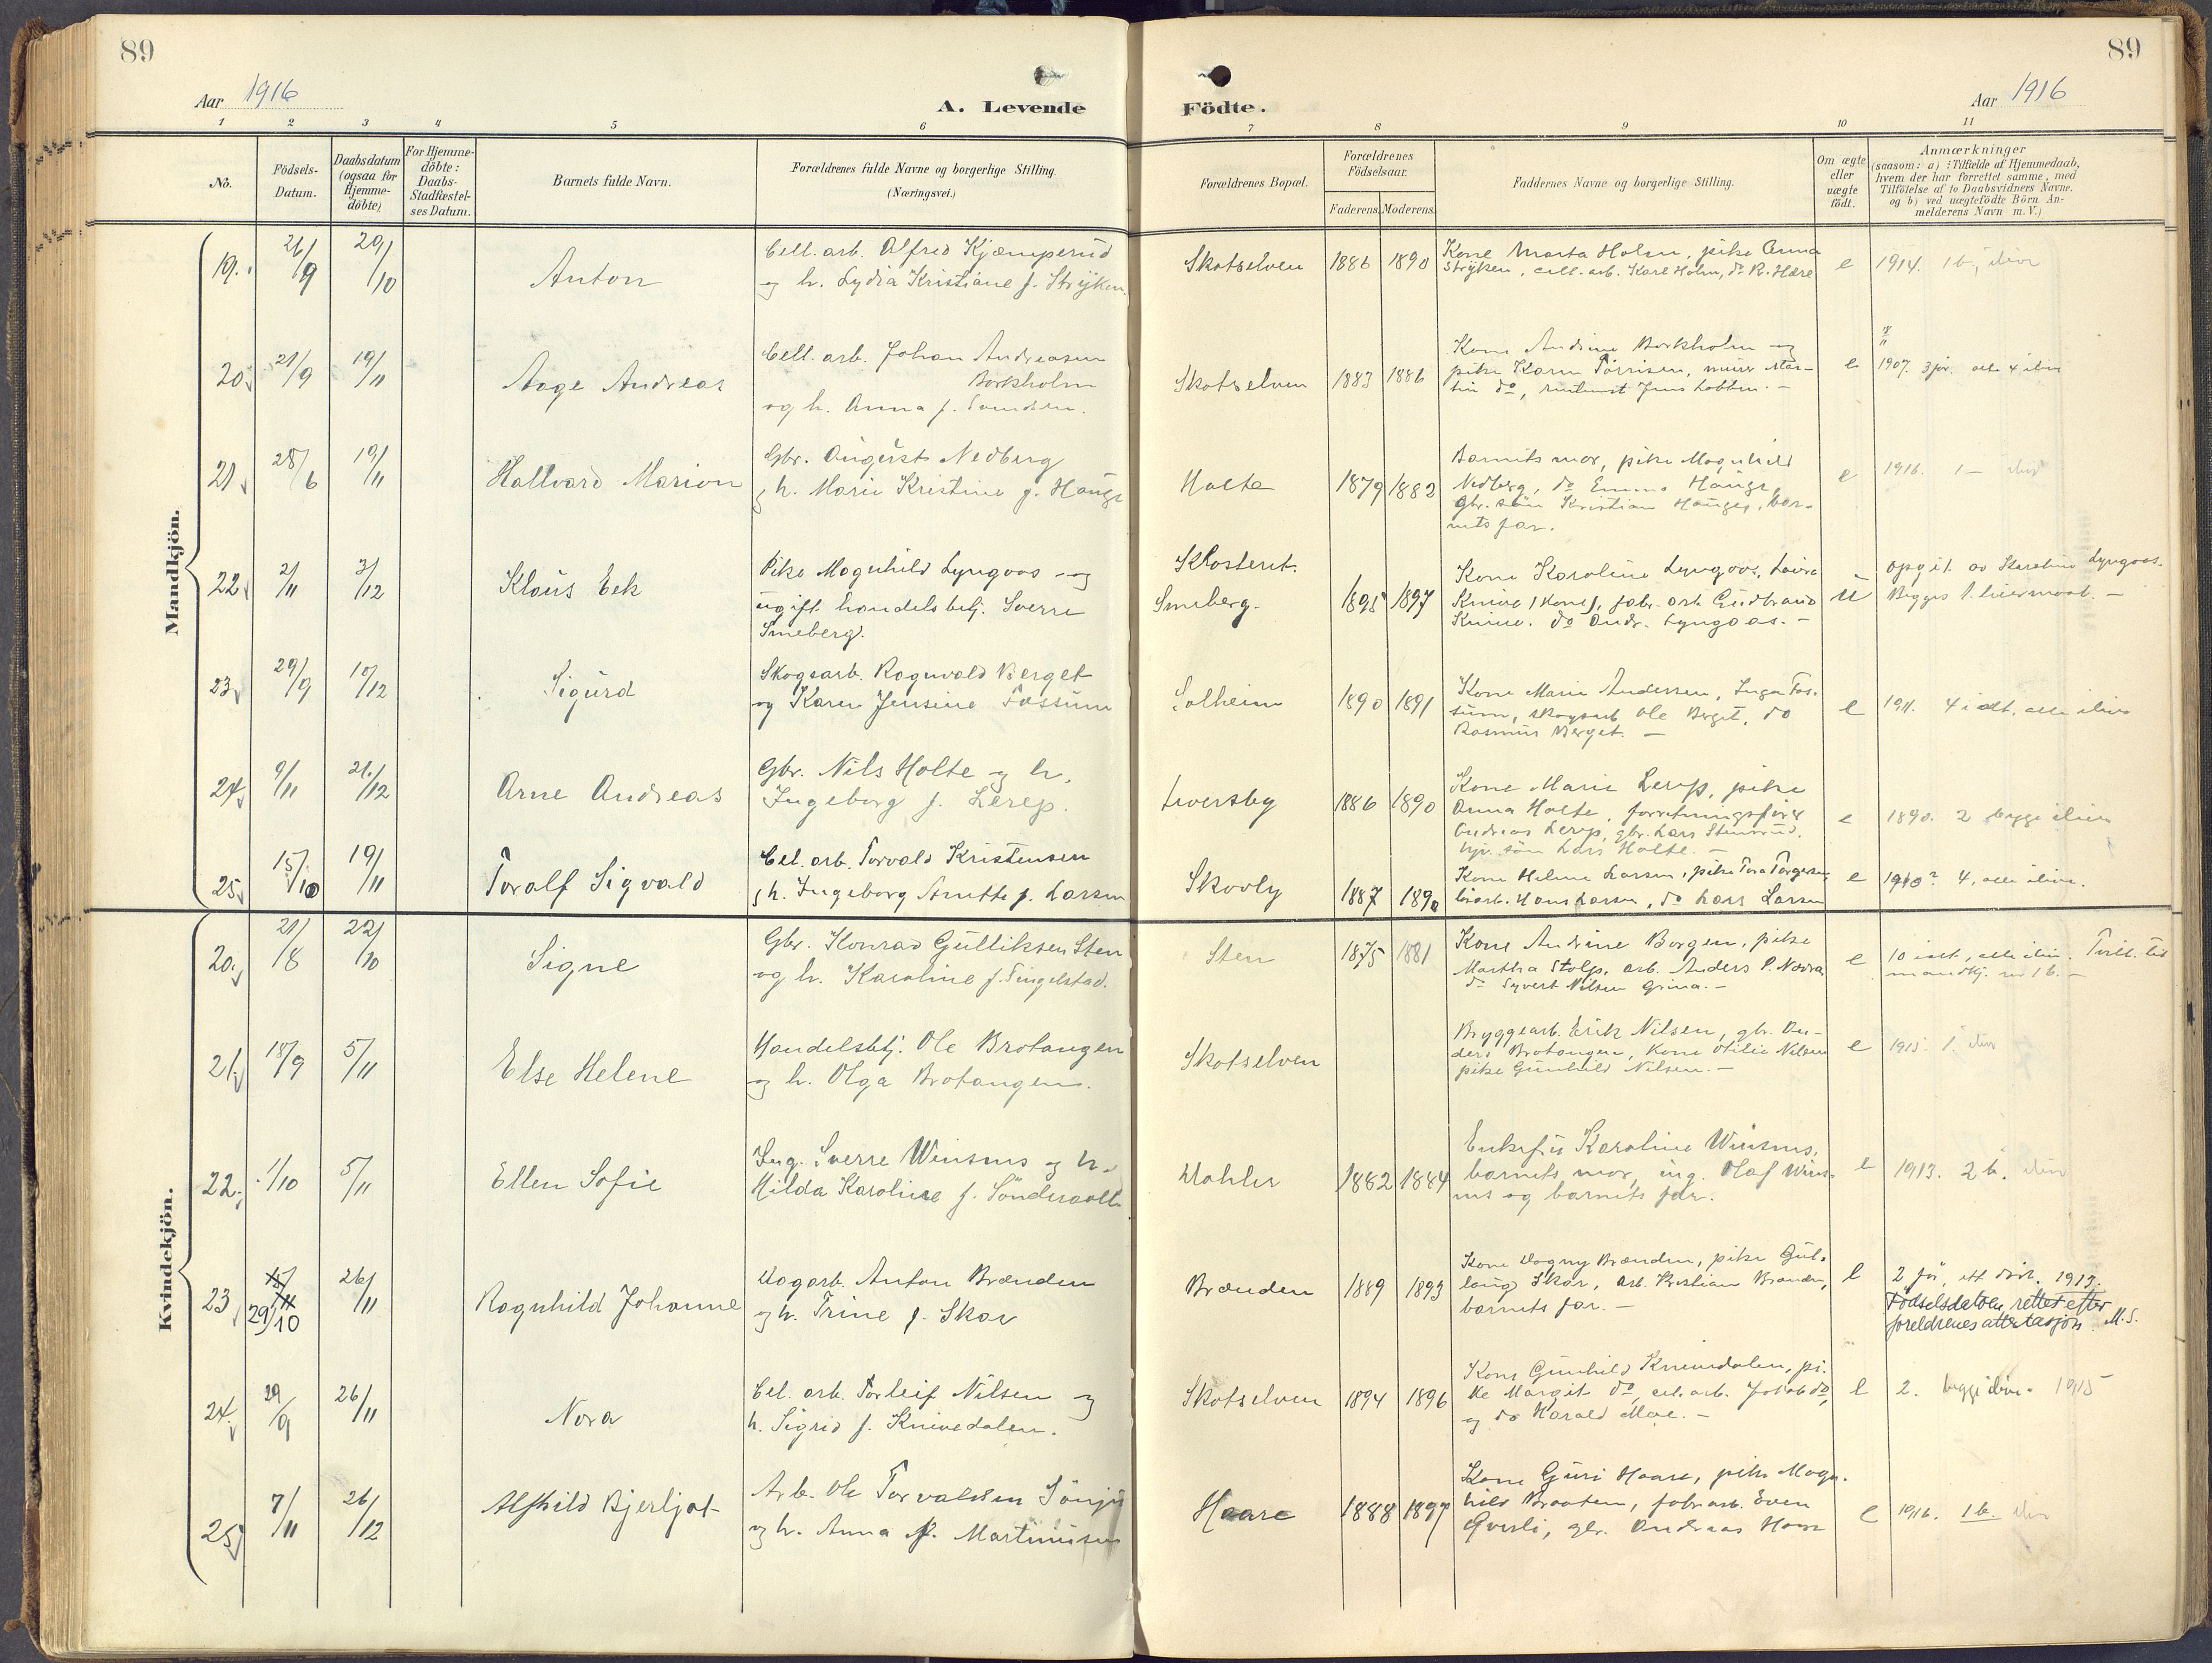 89
89
Aar 1916
A. Levende Födte.
Aar 1916
1 2 3 4 5 6 7 8 9 10 11
No.
Födsels-Datum.
Daabsdatum (ogsaa for Hjemme-döbte)
For Hjemme-döbte: Daabs-Stadfæstel-ses Datum.
Barnets fulde Navn.
Forældrenes fulde Navne og borgerlige Stilling.
(Næringsvei.)
Forældrenes Bopæl.
Forældrenes Födselsaar.
Faderens. Moderens.
Faddernes Navne og borgerlige Stilling.
Om ægte eller uægte födt.
Anmærkninger
(saasom: a) i Tilfælde af Hjemmedaab,
hvem der har forrettet samme, med
Tilföielse af to Daabsvidners Navne.
og b) ved uægtefödte Börn An-
melderens Navn m. V.)
Mandkjön.
19. 26/9 29/10 Anton
Cell. arb. Alfred Kjæmperud
og h. Lydia Kristiane f. Stryken.
Skotselven 1886 1890
Kone Marta Holm, pike Anna
Stryken, cell. arb. Karl Holm, do R. Hære
e 1914. 1 b,
20. 21/9 19/11 Aage Andreas
Cell. arb. Johan Andreasen
Borkholm
og h. Anna f. Svendsen.
Skotselven 1883 1886
Kone Andrine Borkholm og
pike Karen
e 1907. 3 alle 4
21. 28/6 19/11 Hallvard Marion
Gbr. August Nedberg
og h. Marie Kristine f. Hauge
Holte 1879 1882
Barnets mor, pike Magnhild
Nedberg, do Emma Hauge,
gbr. sön Kristian Hauge, bar-
nets far.
e 1916. 1
22. 2/11 3/12 Klaus Eek
Pike Magnhild Lyngaas og
ugift handelsbetj. Sverre
Smeberg.
Klosterit.
Smeberg. 1895 1897
Kone Karoline Lyngaas,
Knive (kone), fabr. arb. Gudbrand
Knive. do Andr. Lyngaas.
u
opgit av Lyngaas.
Begges 1.
23. 29/9 10/12 Sigurd
Skogsarb. Ragnvald Berget
og Karen Jensine Fossum
Solheim 1890 1891
Kone Marie Andersen, Inga Fos-
sum, skogsarb. Ole Berget, do
Rasmus Berget.
e 1911. 4 i alt, alle
24. 9/11 21/12 Arne Andreas
Gbr. Nils Holte og h.
Ingeborg f. Lerep.
Liversby 1886 1890
Kone Marie Lerep, pike
Anna Holte, forretningsförer
Andreas Lerep, gbr. Lars
sön Lars Holte.
e 1890. 2 begge
25. 15/10 19/11 Toralf Sigvald
Cel. arb. Torvald Kristensen
h. Ingeborg Anette f. Larsen
Skovly 1887 1890
Kone Helene Larsen, pike Tora Torgersen
Hans Larsen, do Lars Larsen
e 4, alle
Kvindekjön.
20. 21/8 22/10 Signe
Gbr. Konrad Gulliksen Sten
og h. Karoline f. Tingelstad.
Sten 1875 1881
Kone Andrine Borgen, pike
Martha Stolp, arb. Anders P. Nedra
do Syvert Nilsen Grina.
e 10 i alt, alle
21. 18/9 5/11 Else Helene
Handelsbtj. Ole Brotangen
og h. Olga Brotangen.
Skotselven
Bryggearb. Erik Nilsen, gbr. An-
ders Brotangen, Kone Otilie Nilsen
pike Gunhild Nilsen.
e 1915. 1.
22. 1/10 5/11 Ellen Sofie
Ing. Sverre Winsnes og h.
Hilda Karoline f. Sönderaal
Wahler 1882 1884
Enkefru Karoline Winsnes,
barnets mor, ing. Olaf Wins-
nes og barnets far.
e 1913. 2 b.
23 15/11 29/10 26/11 Ragnhild Johanne
Dagarb. Anton Brænden
og h. Trine f. Skar
Brænden 1889 1893
Kone Dagny Brænden, pike Gul-
laug Skar, arb. Kristian Brænden,
barnets far.
e 2 för, ett död. 1912.
Födselsdatoen rettet efter
foreldrenes attestasjon. M.S.
24. 29/9 26/11 Nora
Cel. arb. Torleif Nilsen og
h. Sigrid f. Knivedalen.
Skotselven 1894 1896
Kone Gunhild Knivedalen, pi-
ke Margit do, cel. arb. Jakob do,
og do Harald Moe.
e 2. begge 1915
25. 7/11 26/12 Alfhild Bjerljot
Arb. Ole Torvaldsen
og h. Anna f. Martinisen
Haare 1888 1897
Kone Guri Haare, pike Magn-
hild Braaten, fabr. arb. Even
Qverli, gbr. Andreas Haare
e 1916. 1 b.